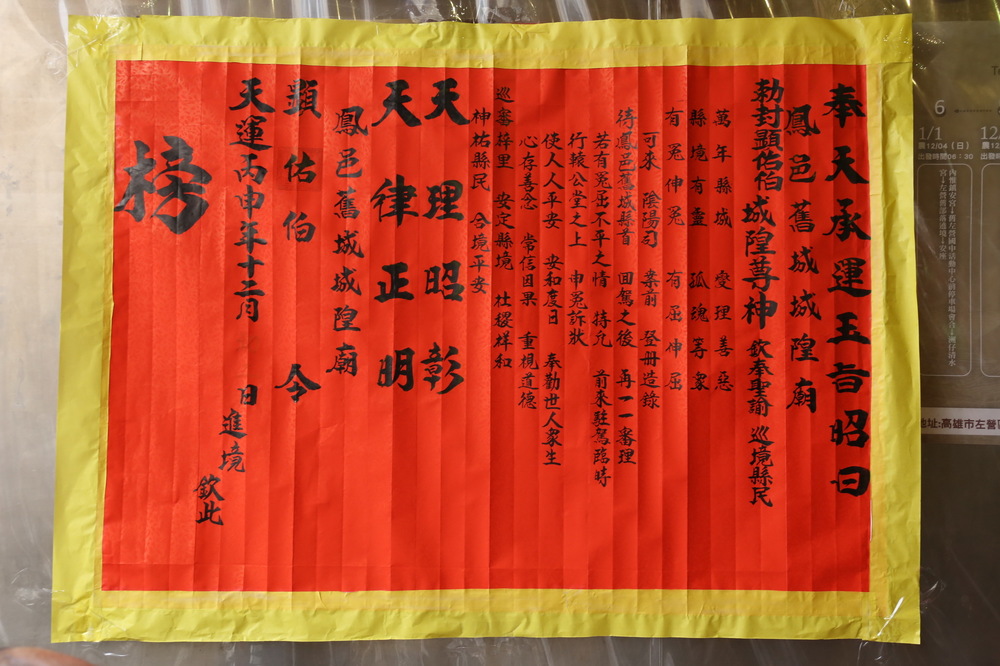 奉天承運玉旨昭曰
鳳邑舊城城隍廟
勅封顯佑伯城隍尊神 欽奉聖諭 巡境縣民
萬年縣城 燮理善惡
縣境有靈 孤魂等眾
有冤伸冤 有屈伸屈
可來 陰陽司 案前 登册造錄
待鳳邑舊城縣首 回駕之後 再一一審理
若有冤屈不平之情 特允 前來駐駕臨時
行轅公堂之上 申冤訴狀
使人人平安 安和度日 奉勤世人眾生
心存善念 常信因果 重視道德
巡審梓里 安定縣境 社稷祥和
神祐縣民 合境平安
天理昭彰
天律正明
鳳邑舊城城隍廟
顯佑伯 令
天運丙申年十二月 日
進境
欽此
榜
6
1/1
農12/04（日）
出發時間06：30
12
農12
出發
地址:高雄市左營區